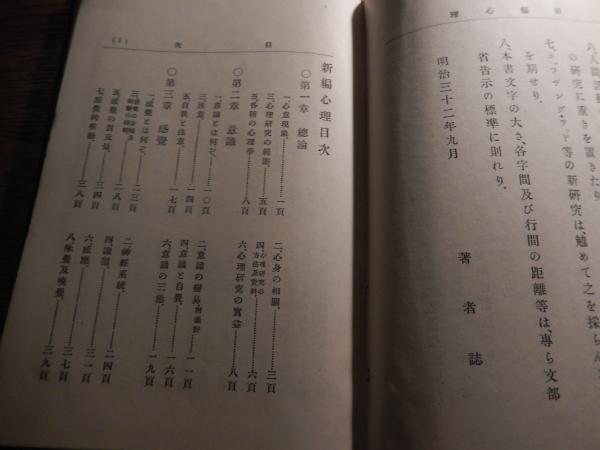 新編心理
六、人間
の研究に重きを置きたり
七、ラッド等の新研究は、勉めて之を採らん
を期せり。
八、本書文字の大さ、各字間及び行間の距離等は、専ら文部
省告示の標準に則れり。
明治三十二年九月
著者誌
目次
(1)
新編心理目次
〇第一章 總論
一、心意現象、……一頁
二、心身の相關、……三頁
三、心理研究の範圍、……五頁
四、心理研究の方法及資料……六頁
五、各種の心理學、……八頁
六、心理研究の實益……八頁
〇第二章 意識
一、意識とは何ぞ、……一〇頁
二、意識の變易、……一一頁
三、注意、……一四頁
四、意識と自覺、……一六頁
五、自我と注意、……一七頁
六、意識の三態、……一九頁
〇第三章 感覺
一、感覺とは何ぞ、……二三頁
二、神經系統、……二四頁
四、識閾、……三一頁
五、感覺の質及量、……二八頁
六、感應、……三七頁
七、感覺的衝動、……三四頁
八、味覺及嗅覺、……三九頁
三八頁